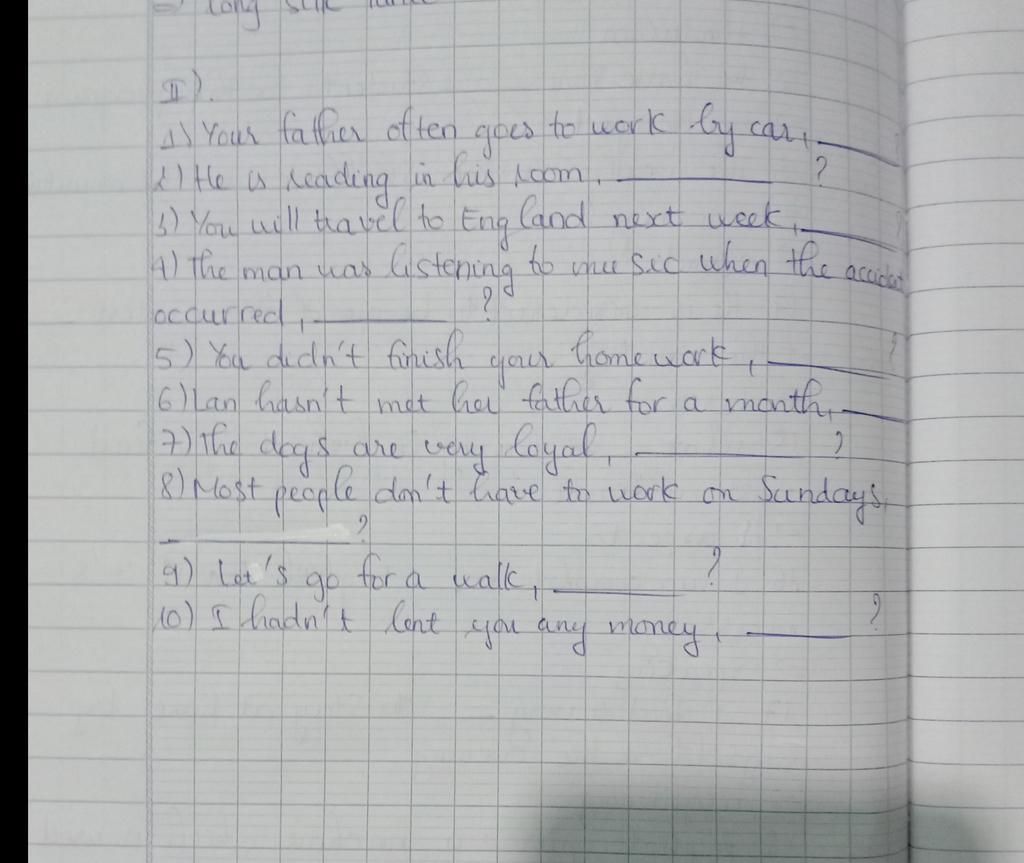 long silk
II).
1) Your father often goes to work by car, ______
2) He is reading in his room, ______ ?
3) You will travel to England next week, ______
4) The man was listening to music when the accident
occurred, ______ ?
5) You didn't finish your homework, ______ ?
6) Lan hasn't met her father for a month, ______
7) The dogs are very loyal, ______ ?
8) Most people don't have to work on Sundays,
______ ?
9) Let's go for a walk, ______ ?
10) I hadn't lent you any money, ______ ?